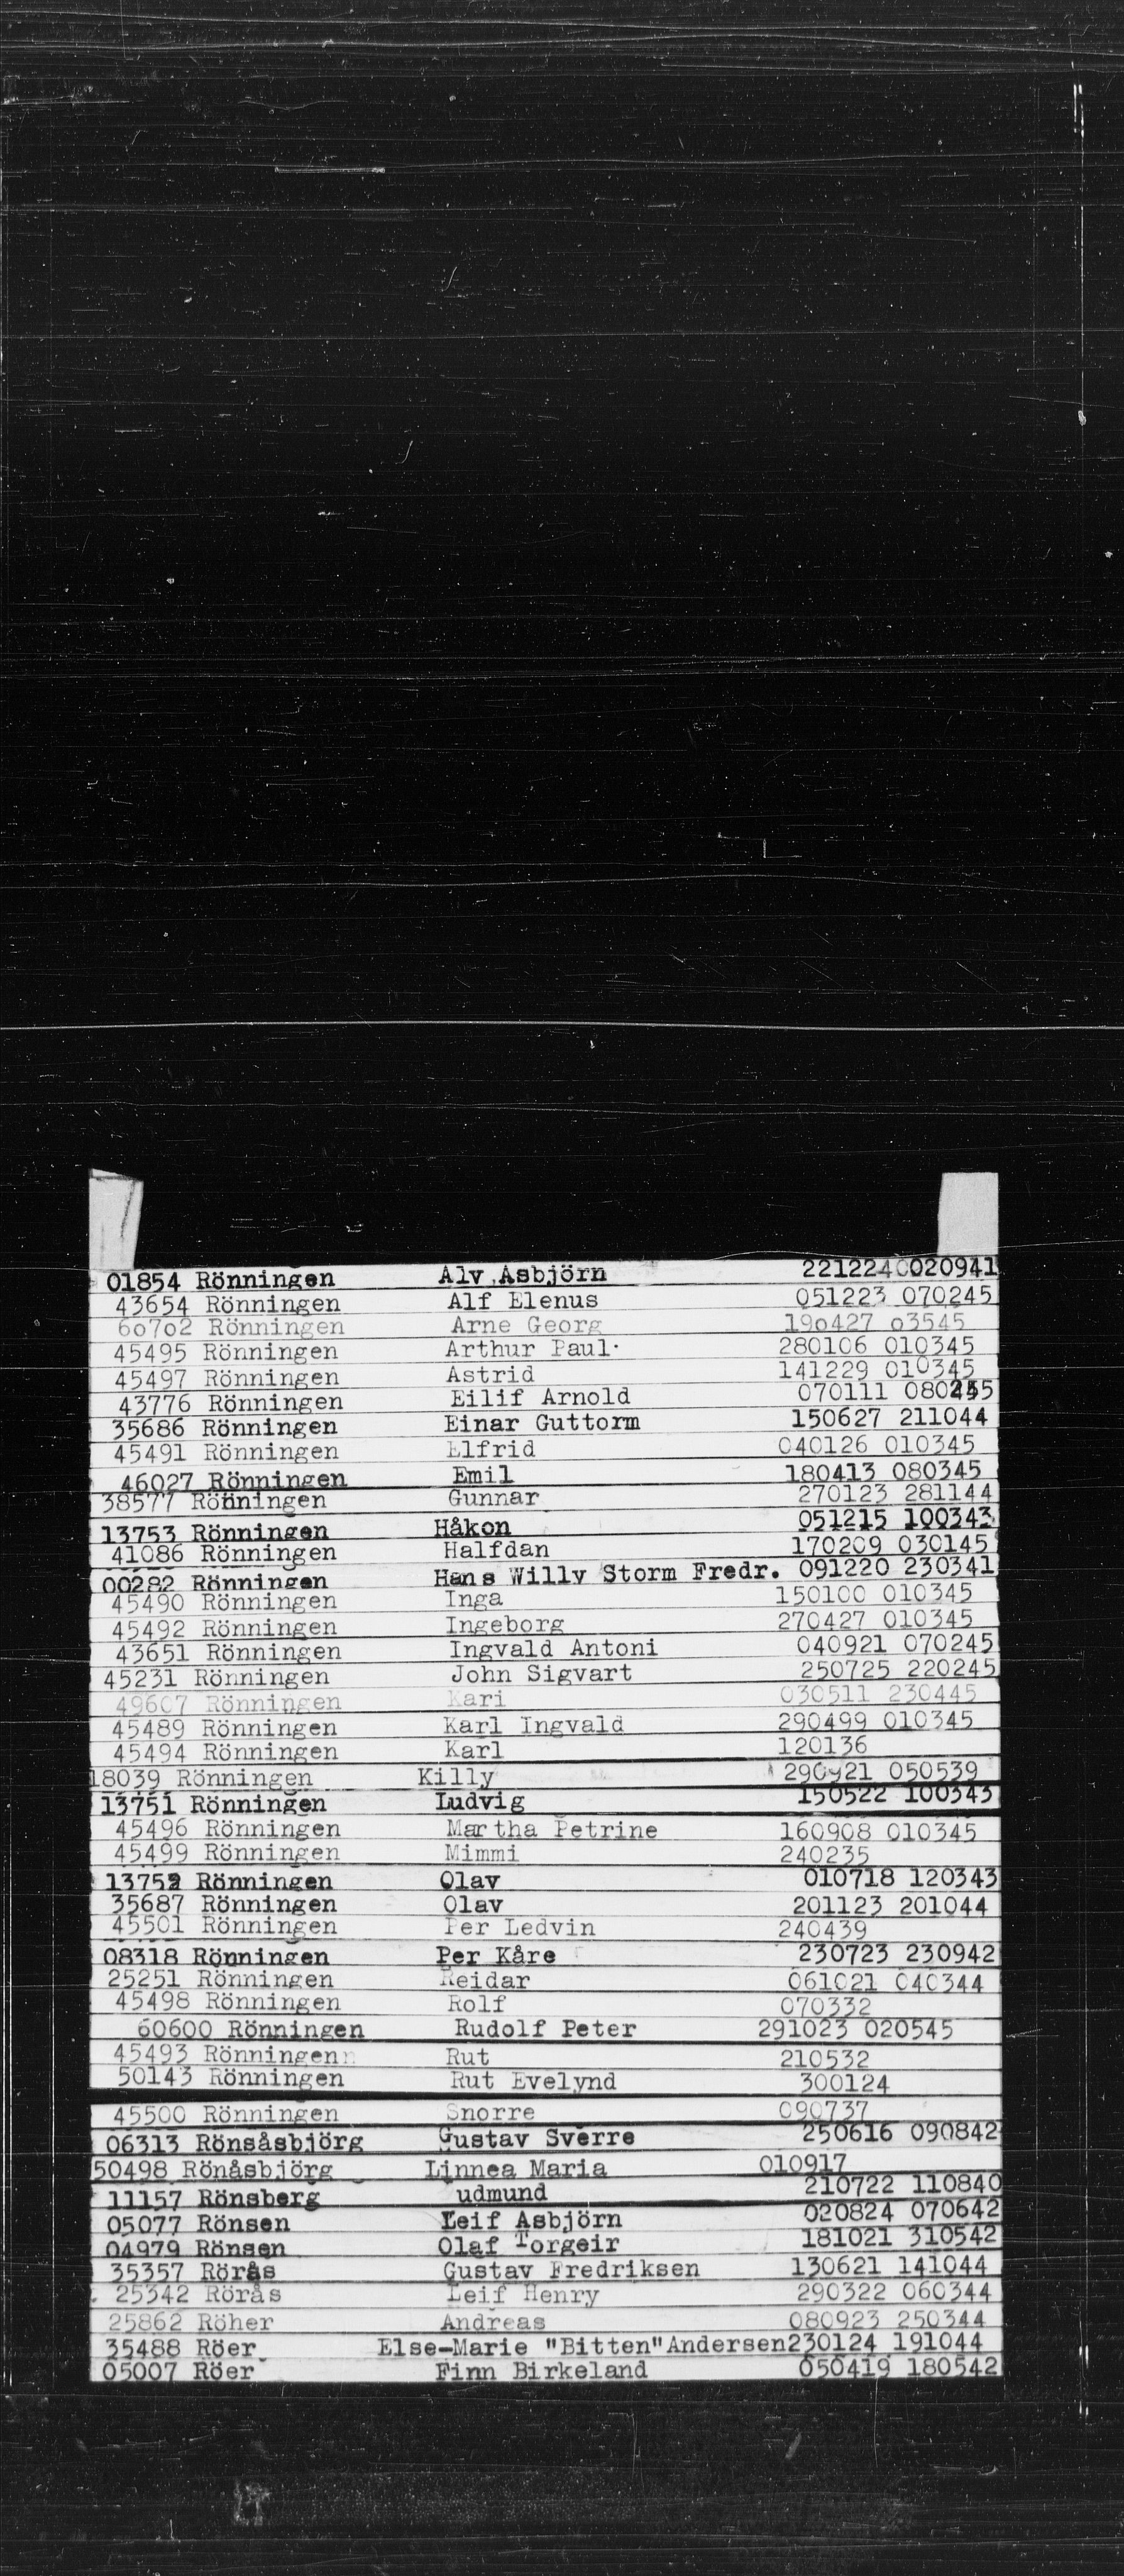 01854 Rönningen Alv Asbjörn 221224 020941
43654 Rönningen Alf Elenus 051223 070245
60702 Rönningen Arne Georg 190427 03545
45495 Rönningen Arthur Paul. 280106 010345
45497 Rönningen Astrid 141229 010345
43776 Rönningen Eilif Arnold 070111 080245
35686 Rönningen Einar Guttorm 150627 211044
45491 Rönningen Elfrid 040126 010345
46027 Rönningen Emil 180413 080345
38577 Rönningen Gunnar 270123 281144
13753 Rönningen Håkon 051215 100343
41086 Rönningen Halfdan 170209 030145
00282 Rönningen Hans Willy Storm Fredr. 091220 230341
45490 Rönningen Inga 150100 010345
45492 Rönningen Ingeborg 270427 010345
43651 Rönningen Ingvald Antoni 040921 070245
45231 Rönningen John Sigvart 250725 220245
49607 Rönningen Kari 030511 230445
45489 Rönningen Karl Ingvald 290499 010345
45494 Rönningen Karl 120136
18039 Rönningen Killy 290921 050539
13751 Rönningen Ludvig 150522 100343
45496 Rönningen Martha Petrine 160908 010345
45499 Rönningen Mimmi 240235
13752 Rönningen Olav 010718 120343
35687 Rönningen Olav 201123 201044
45501 Rönningen Per Ledvin 240439
08318 Rönningen Per Kåre 230723 230942
25251 Rönningen Reidar 061021 040344
45498 Rönningen Rolf 070332
60600 Rönningen Rudolf Peter 291023 020545
45493 Rönningen Rut 210532
50143 Rönningen Rut Evelynd 300124
45500 Rönningen Snorre 090737
06313 Rönsåsbjörg Gustav Sverre 250616 090842
50498 Rönåsbjörg Linnea Maria 010917
11157 Rönsberg udmund 210722 110840
05077 Rönsen Leif Asbjörn 020824 070642
04979 Rönsen Olaf Torgeir 181021 310542
35357 Rörås Gustav Fredriksen 130621 141044
25342 Rörås Leif Henry 290322 060344
25862 Röher Andreas 080923 250344
35488 Röer Else-Marie "Bitten" Andersen 230124 191044
05007 Röer Finn Birkeland 050419 180542